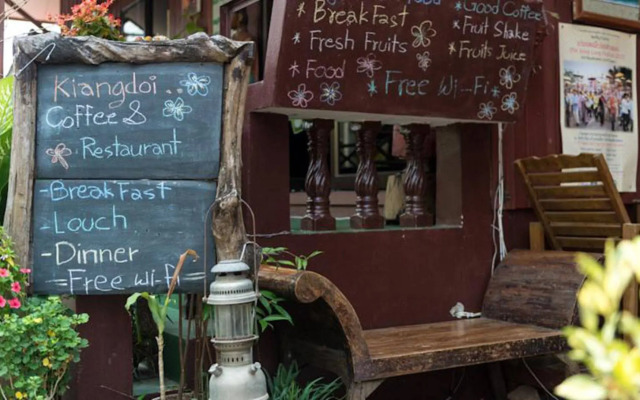 Kiangdoi ..
Coffee &
Restaurant
-BreakFast
-Louch
-Dinner
=Free wi-F
* BreakFast
* Fresh Fruits
* Food
* Good Coffee
* Fruit Shake
* Fruits Juice
* Free Wi-Fi